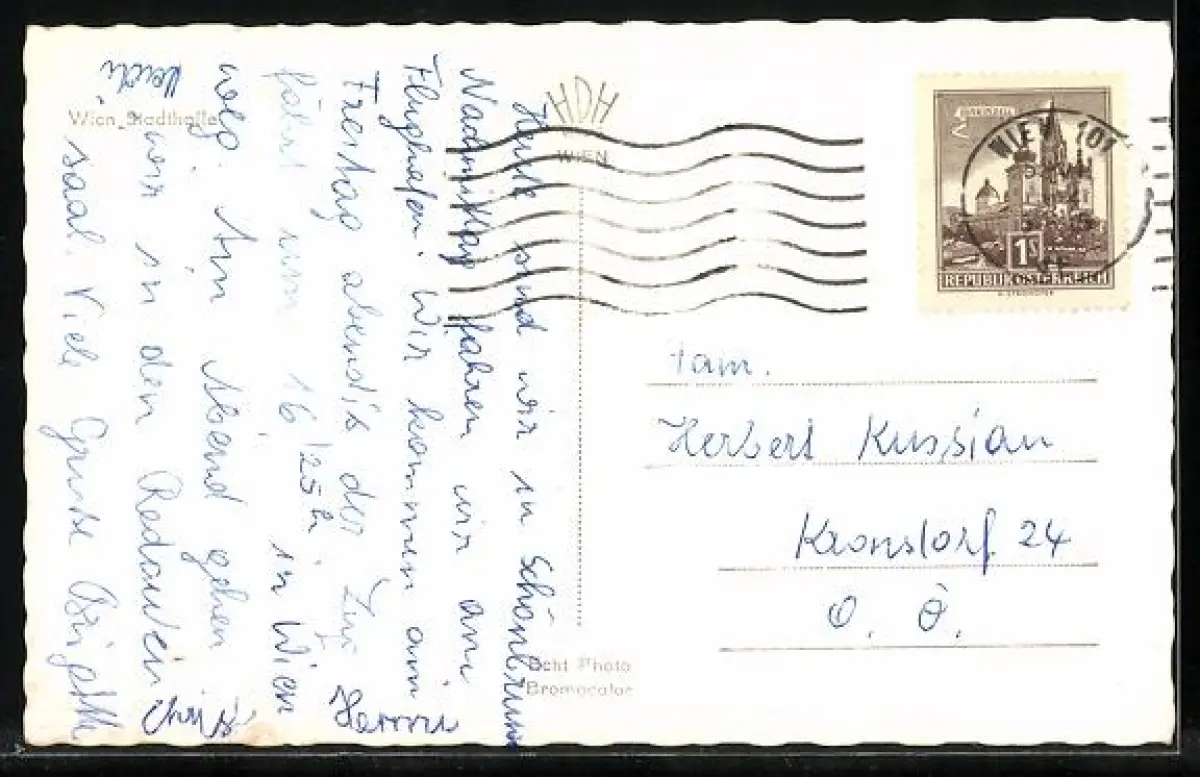 Wien, Stadthalle
HDH
WIEN
Heute sind wir in Schönbrunn
Nachmittag fahren wir am
Flughafen. Wir kommen am
Freitag abends der Zug
fährt um 16 1/25 h. in Wien
weg. Am Abend gehen
wir in den Redouten
saal. Viele Grüße Birgitt
Herrmi
Christ
Echt Photo
Bromocolor
WIEN 101
MARIAZELL
1 S
REPUBLIK ÖSTERREICH
Fam.
Herbert Kussian
Kronstorf 24
O. Ö.